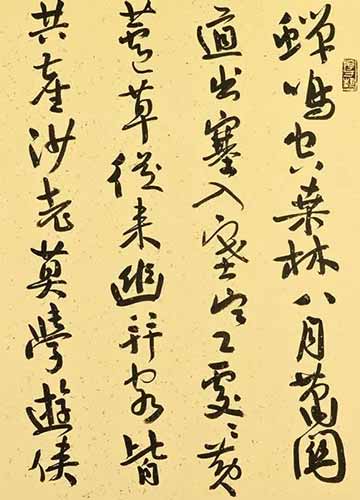 蟬鳴空桑林八月蕭關
道出塞入塞寒處〻黃
蘆草從來幽并客皆
共塵沙老莫學遊俠